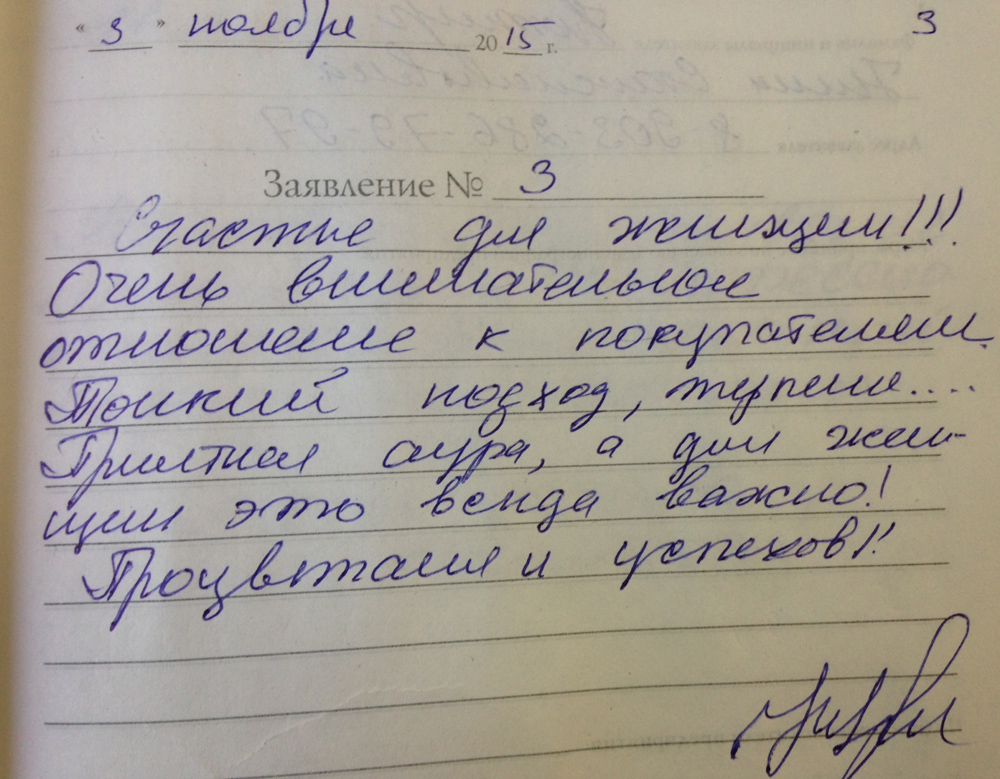 « 3 » ноября 2015 г.
3
Заявление № 3
Счастье для женщин!!!
Очень внимательное
отношение к покупателям.
Тонкий подход, терпение....
Приятная аура, а для жен-
щин это всегда важно!
Процветания и успехов!!